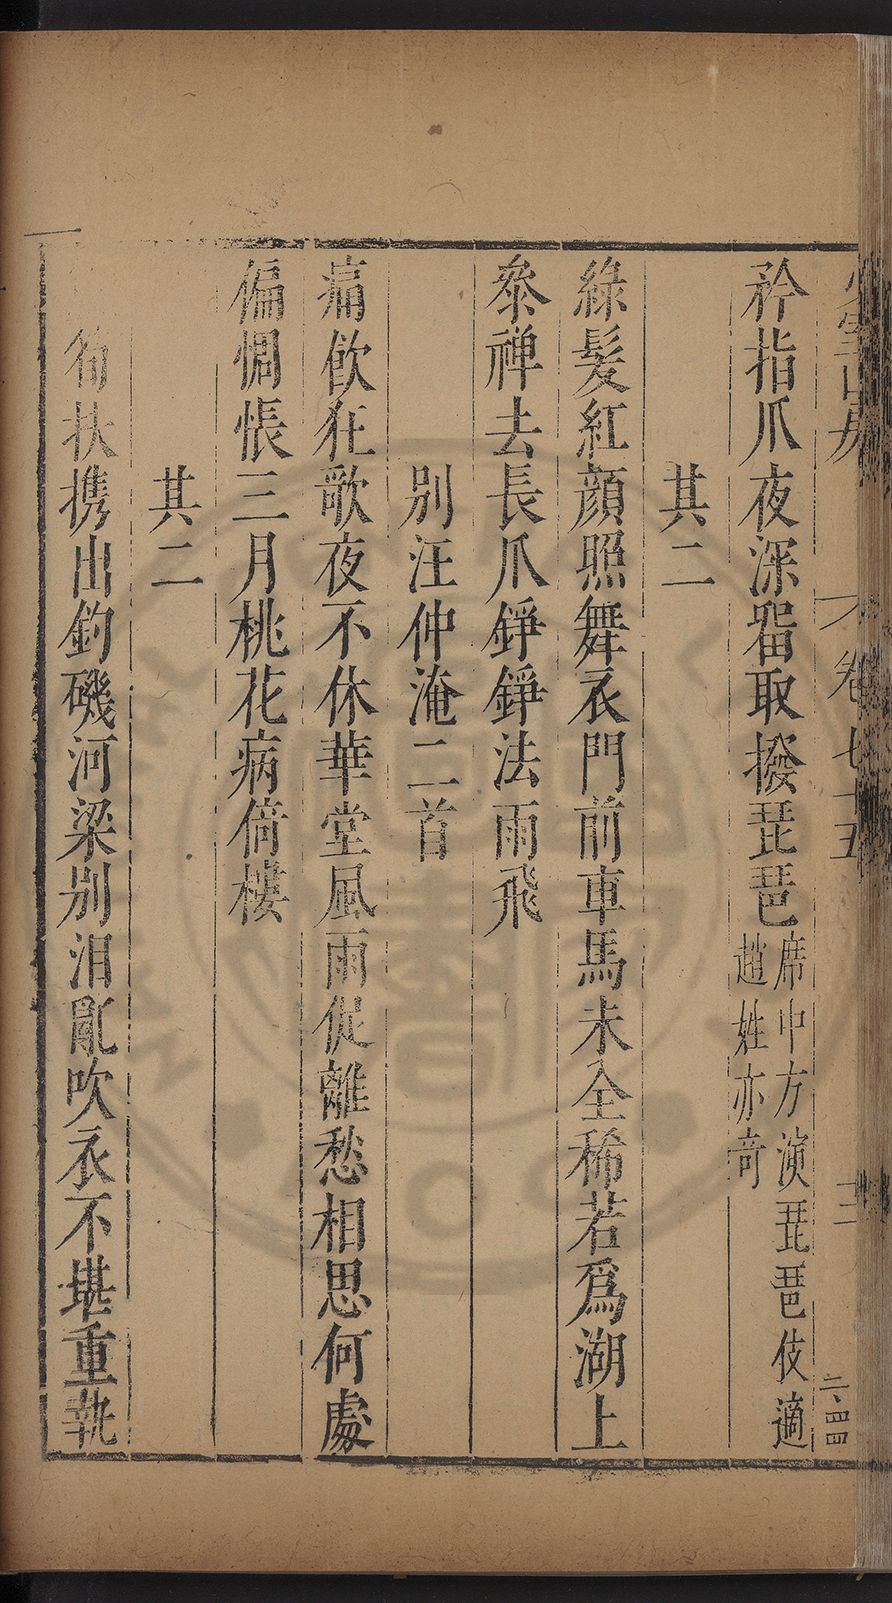 卷七十五
三
二、四四
矜指爪夜深畱取撥琵琶席中方演琵琶伎適
趙姓亦奇
其二
綠髮紅顔照舞衣門前車馬未全稀若爲湖上
叅禅去長爪錚錚法雨飛
别汪仲淹二首
痛飲狂歌夜不休華堂風雨促離愁相思何處
偏惆悵三月桃花病倚樓
其二
筍扶携出釣磯河梁别泪亂吹衣不堪重執